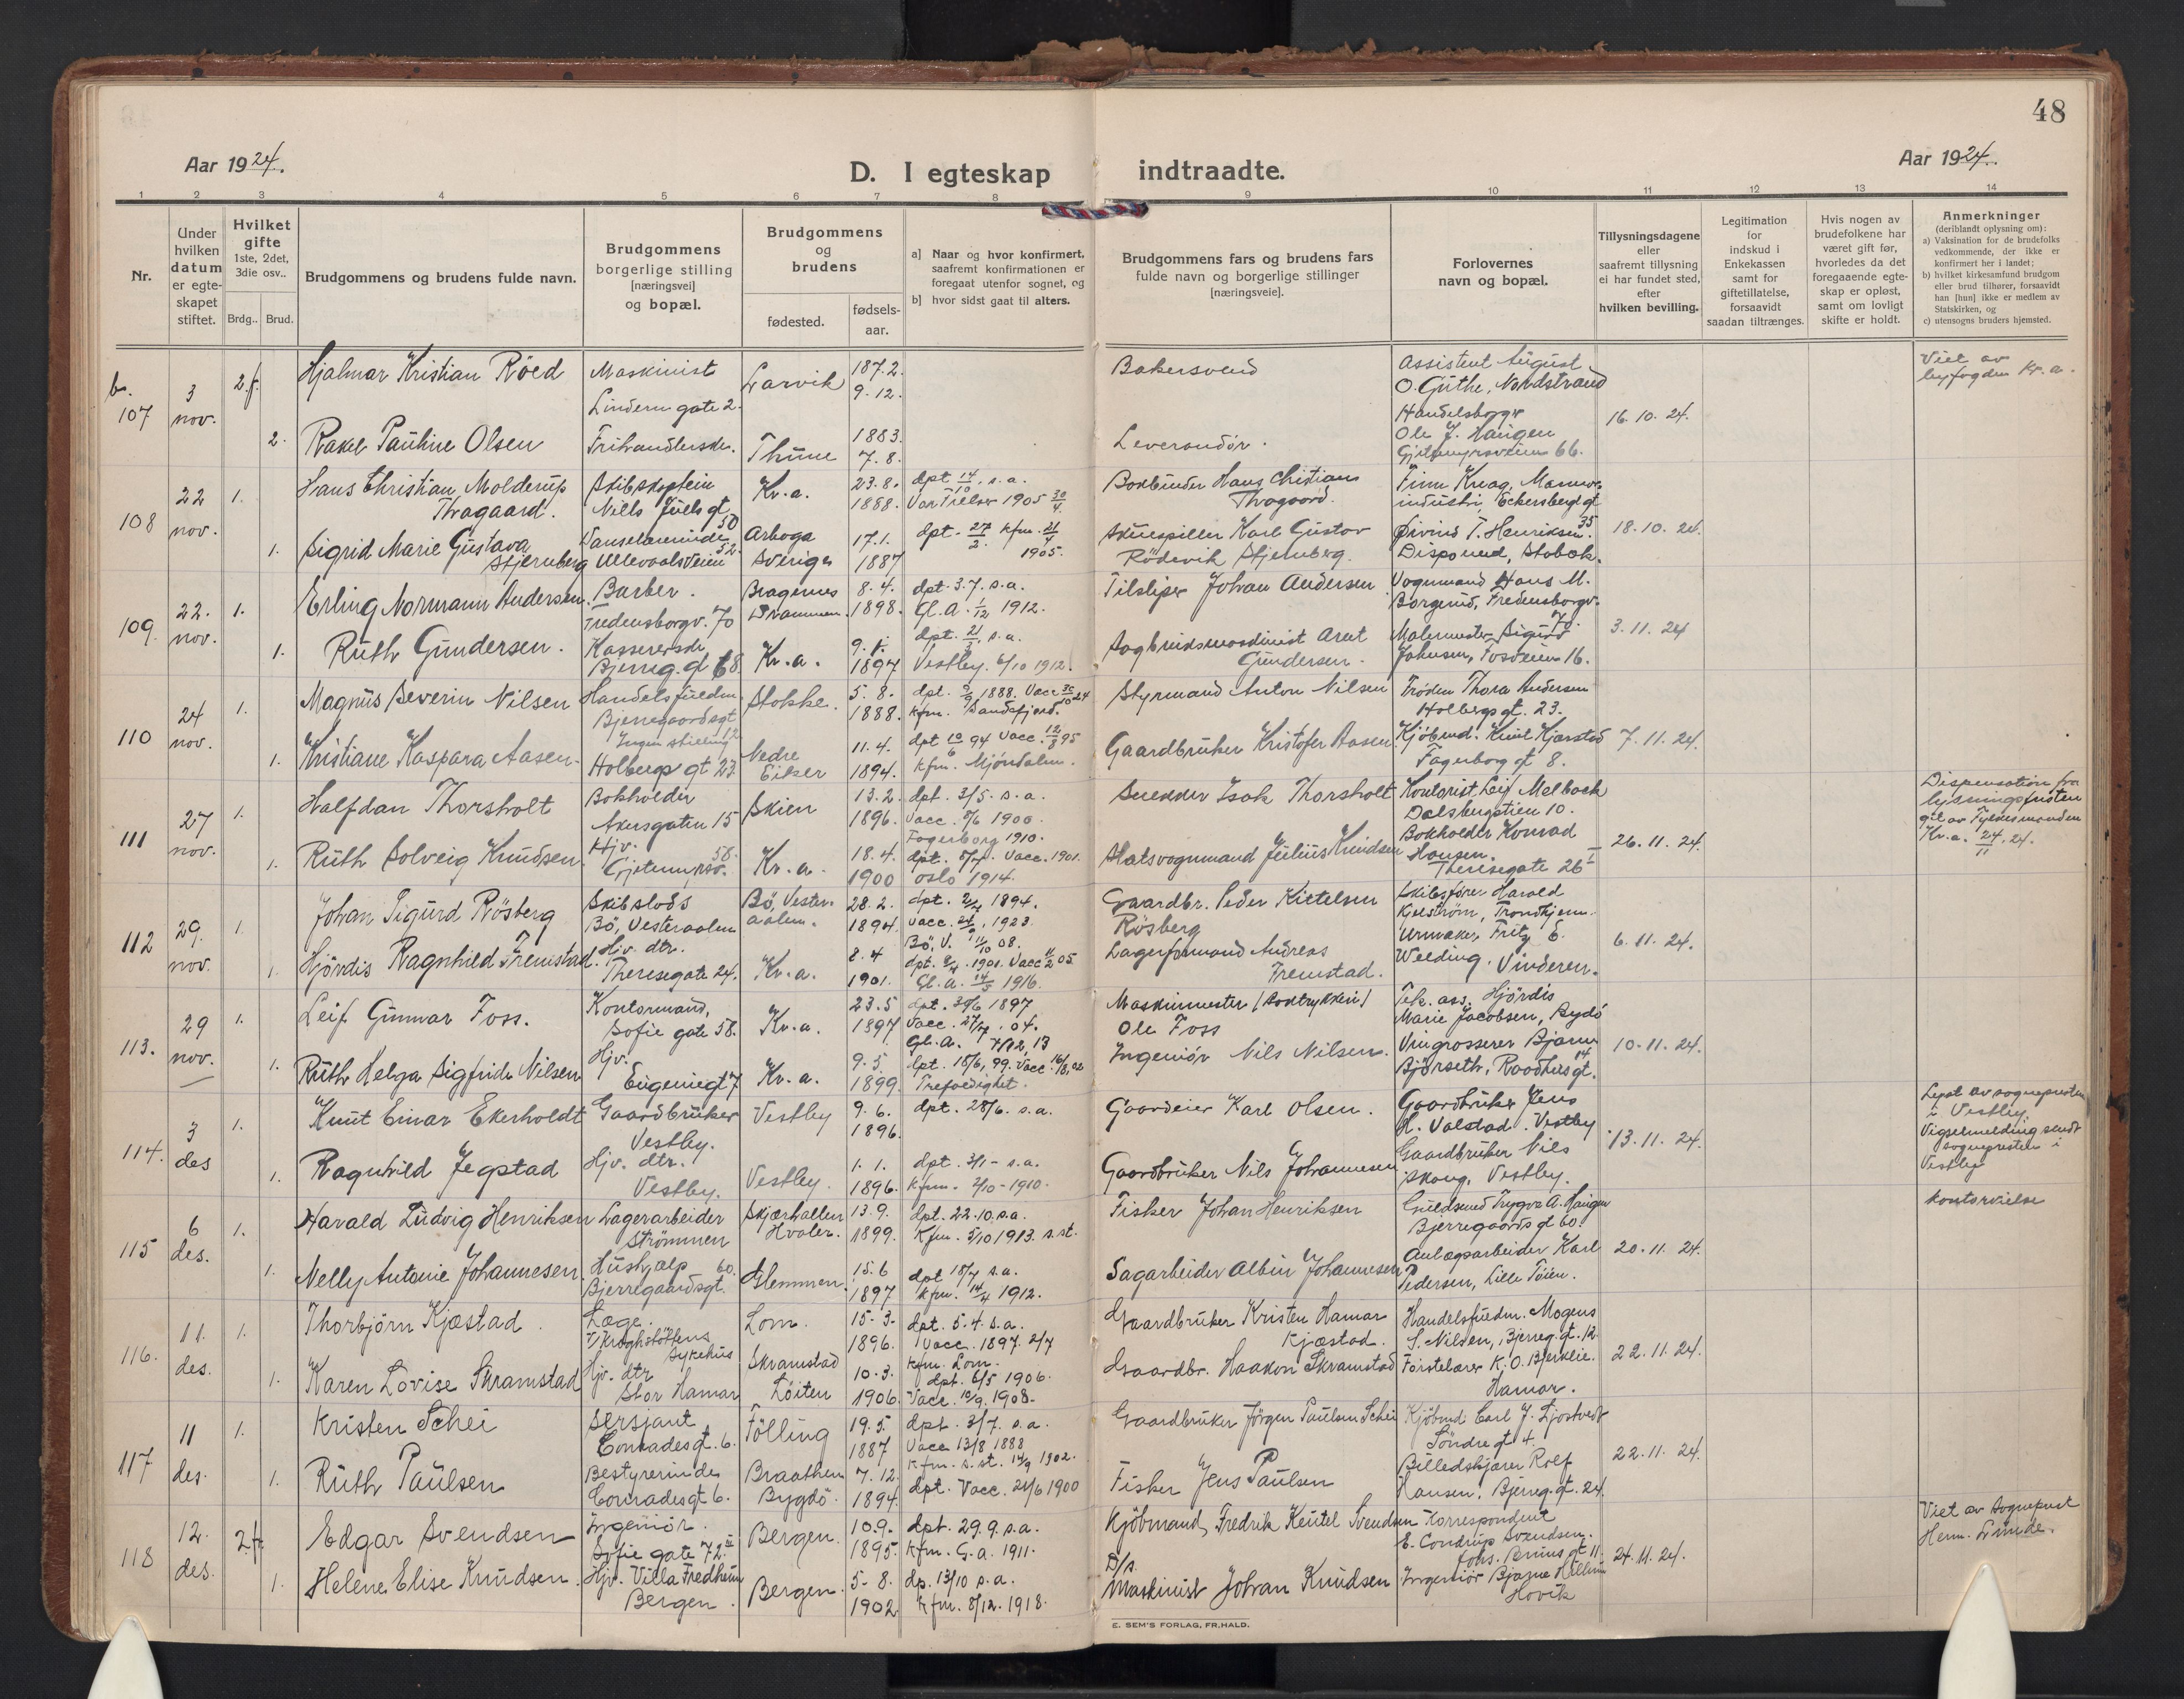 48
Aar 1924.
D. I egteskap indtraadte.
Aar 1924.
1 2 3 4 5 6 7 8 9 10 11 12 13 14
Nr.
Under hvilken datum er egte-skapet stiftet.
Hvilket gifte 1ste, 2det, 3die osv..
Brdg.. Brud.
Brudgommens og brudens fulde navn.
Brudgommens borgerlige stilling [næringsvei] og bopæl.
Brudgommens og brudens
fødested.
fødsels-aar.
a] Naar og hvor konfirmert, saafremt konfirmationen er foregaat utenfor sognet, og
b] hvor sidst gaat til alters.
Brudgommens fars og brudens fars fulde navn og borgerlige stillinger [næringsveie].
Forlovernes navn og bopæl.
Tillysningsdagene eller saafremt tillysning ei har fundet sted, efter hvilken bevilling.
Legitimation for indskud i Enkekassen samt for giftetillatelse, forsaavidt saadan tiltrænges.
Hvis nogen av brudefolkene har været gift før, hvorledes da det foregaaende egte-skap er opløst, samt om lovligt skifte er holdt.
Anmerkninger (deriblandt oplysning om):
a) Vaksination for de brudefolks vedkommende, der ikke er konfirmert her i landet;
b) hvilket kirkesamfund brudgom eller brud tilhører, forsaavidt han [hun] ikke er medlem av Statskirken, og
c) utensogns bruders hjemsted.
107 3 nov. 2 f.
Hjalmar Kristian Röed
Maskinist
Lindern gate 2.
Larvik
1872.
9.12.
Bakersvend
Assistent August
O. Guthe, Nordstrand
16.10.24.
Viet av
byfogden Kr.a.
2. Rakel Pauline Olsen
Frihandlerske.
Thune
1883.
7.8.
Leverandör.
Handelsborger
Ole J. Haugen
Gjetemyrsveien 66.
108 22 nov. 1.
Hans Christian Molderup
Thragaard.
Skibskaptein
Niels Juels gt 50
Kr.a.
23.8.
1888.
dpt 14/10, s.a.
Vor Frelser 1905 30/4
Bokbinder Hans Christian
Thragaard.
Finn Knag,
industri, Eckersbergs gt 35
18.10.24.
1. Sigrid Marie Gustava
Stjernberg
Danselærerinde
Ullevaalsveien 52.
Arboga
Sverige
17.1.
1887
dpt. 27/2. kfm. 21/4
1905.
Skuespiller Karl Gustav
Rödevik Stjernberg.
Öivind T. Henriksen.
Disponend, Stabæk.
109. 22. nov. 1.
Erling Normann Andersen.
Barber.
Fredensborgv. 70
Bragernes
Drammen.
8.4.
1898.
dpt. 3.7. s.a.
Gl.A. 1/12 1912.
Johan Andersen
Vognmand Hans M.
Borgerud, Fredensborgv. 70.
3.11.24
1. Ruth Gundersen.
Kassererske
Bjerreg. gt 68
Kr.a.
1897
dpt. 21/3, s.a.
Vestby. 6/10 1912.
Sagbruksmaskinist Aret
Gundersen.
Malermester Sigurd
Johnsen, Fosveien 16.
110 24 nov. 1.
Magnus Severin Nilsen
Handelsfuldm.
Bjerregaardsgt 12
Stokke.
5.8.
1888.
dpt. 9/9 1888. Vacc 30/10 24
kfm. Sandefjord.
Styrmand Anton Nilsen
Fröken Thora Andersen
Holbergs gt. 23.
7.11.24.
1. Kristiane Kaspara Aasen.
Ingen stilling
Holbergs gt 23.
Nedre
Eiker
11.4.
1894.
dpt 10/6 94 Vacc. 12/8 95
kfm. Mjöndalen.
Gaardbruker Kristofer Aasen
Kjöbmd. Emil Kjærstad
Fagerborg gt 8.
111 27 nov. 1.
Halfdan Thorsholt
Bokholder
Akersgaten 15
Skien
13.2.
1896.
dpt. 3/5. s.a.
Vacc. 5/6 1900.
Fagerborg 1910.
Snekker Isak Thorsholt
Kontorist Leif Melback
Dalsbergstien 10.
26.11.24.
Dispensation fra
lysningsfristen
git av Fylkesmanden
Kr.a. 24/11.24.
1. Ruth Solveig Knudsen
Hjv.
Gjetemyrsv. 58.
Kr.a.
18.4.
1900
dpt. 8/7. Vacc. 1901.
Oslo 1914.
Slotsvognmand Julius Knudsen
Bokholder Konrad
Hansen.
Theresegate 26 I
112 29. nov. 1.
Johan Sigurd Rösberg
Skibslods
Bö, Vesteraalen
Bö, Vester-
aalen.
28.2.
1894.
dpt. 2/4 1894.
Vacc. 24/9, 1923.
Bö, V. 11/10 08.
Gaardbr. Peder Kietelsen
Rösberg
Skibsförer Harald
Kjelström, Trondhjem.
6.11.24.
1. Hjördis Ragnhild Fremstad.
Hjv. dtr.
Theresegate 24.
Kr.a.
8.4
1901.
dpt. 8/4. 1901. Vacc 11/2 05.
Gl.A. 14/5 1916.
Lagerformand Andreas
Fremstad.
Urmaker Fritz E.
Welding. Vinderen.
113. 29 nov. 1.
Leif Gunnar Foss.
Kontormand,
Sofie gate 58.
Kr.a.
23.5
1897
dpt. 30/6 1897
Vacc. 27/7.04.
Gl.A. 7/12, 13
Maskinmester (Boktrykkeri)
Ole Foss
Tek. ass. Hjördis
Marie Jacobsen, Bygdö
10.11.24.
1. Ruth Helga Sigfride Nilsen
Hjv.
Eugeniegt 7
Kr.a.
9.5
1899.
dpt. 18/6, 99. Vacc. 16/8, 02
Trefoldighet.
Ingeniör Nils Nilsen.
Vingrosserer Bjarne
Björseth, Raadhusgt. 14
114. 3 des 1.
Knut Einar Ekerholdt
Gaardbruker
Vestby.
Vestby
9.6.
1896.
dpt. 28/6. s.a.
Gaardeier Karl Olsen.
Gaardbruker Jens
H. Valstad. Vestby
13.11.24.
Löst av sogneprest
i Vestby.
Vigselmelding sendt
sognepresten i
Vestby
1. Ragnhild Jegstad
Hjv. dtr.
Vestby.
Vestby.
1.1.
1896.
dpt. 3/1 - s.a.
kfm. 2/10-1910.
Gaardbruker Nils Johannesen
Gaardbruker Nils
Skaug. Vestby.
115 6 des. 1.
Harald Ludvig Henriksen
Lagerarbeider
Strömmen
Skjærhallen
Hvaler.
13.9.
1899.
dpt. 22.10. s.a.
Kfm. 5/10 1913. s.st.
Fisker Johan Henriksen
Guldsmed Trygve A. Haugen
Bjerregaards gt 60.
20.11.24.
kontorvielse
1. Nelly Antonie Johannesen.
Hushjælp
Bjerregaardsgt. 60.
Glemmen.
15.6
1897
dpt 18/7 s.a.
kfm. 14/4 1912.
Sagarbeider Albin Johannesen
Anlægsarbeider Karl
Pedersen, Lille Töien.
116. 11. des. 1.
Thorbjörn Kjæstad.
Læge.
v/Kroghstöttens
Sykehus
Lom.
15.3.
1896.
dpt. 5.4. s.a.
Vacc. 1897. 2/7
kfm. Lom.
Gaardbruker Kristen Hamar
Kjæstad.
Handelsfuldm. Mogens
S. Nilsen, Bjerreg. gt. 12
22.11.24.
1. Karen Lovise Skramstad
Hjv. dtr
Stor Hamar
Skramstad
Löiten
10.3.
1906.
dpt. 6/5 1906.
Vacc. 10/9. 1908.
Gaardbr. Haakon Skramstad
Förstelærer K.O. Bjerklie.
Hamar.
117 11 des. 1.
Kristen Schei
Sersjant
Conradesgt. 6.
Fölling
19.5.
1887
dpt. 3/7. s.a.
Vacc 13/8 1888
kfm. s.st. 14/9 1902.
Gaardbruker Jörgen Paulsen Schei
Kjöbmd. Carl J. Ljostvedt
Söndre gt 4.
22.11.24.
1. Ruth Paulsen
Bestyrerinde
Conradesgt 6.
Braathen
Bygdö.
7.12.
1894.
dpt. Vacc. 21/6 1900
Fisker Jens Paulsen
Billedskjærer Rolf
Hansen. Bjerreg. gt. 24.
118 12. des. 2. fr.
Edgar Svendsen
Ingeniör.
Sofie gate 72 III
Bergen.
10.9.
1895.
dpt. 29.9. s.a.
Kfm. G.a. 1911.
Kjöbmand Fredrik Keutel Svendsen
Korrespondent
E. Condrup Svendsen.
Johs. Bruns gt 11.
24.11.24.
Viet av Sogneprest
Herm. Lunde.
1. Helene Elise Knudsen.
Hjv. Villa Fredheim
Bergen.
Bergen.
5.8.
1902.
dp. 13/10 s.a.
Kfm. 8/12. 1918.
D/s.
Maskinist Johan Knudsen
Ingeniör Bjarne
Hövik
E. SEM'S FORLAG, FR.HALD.